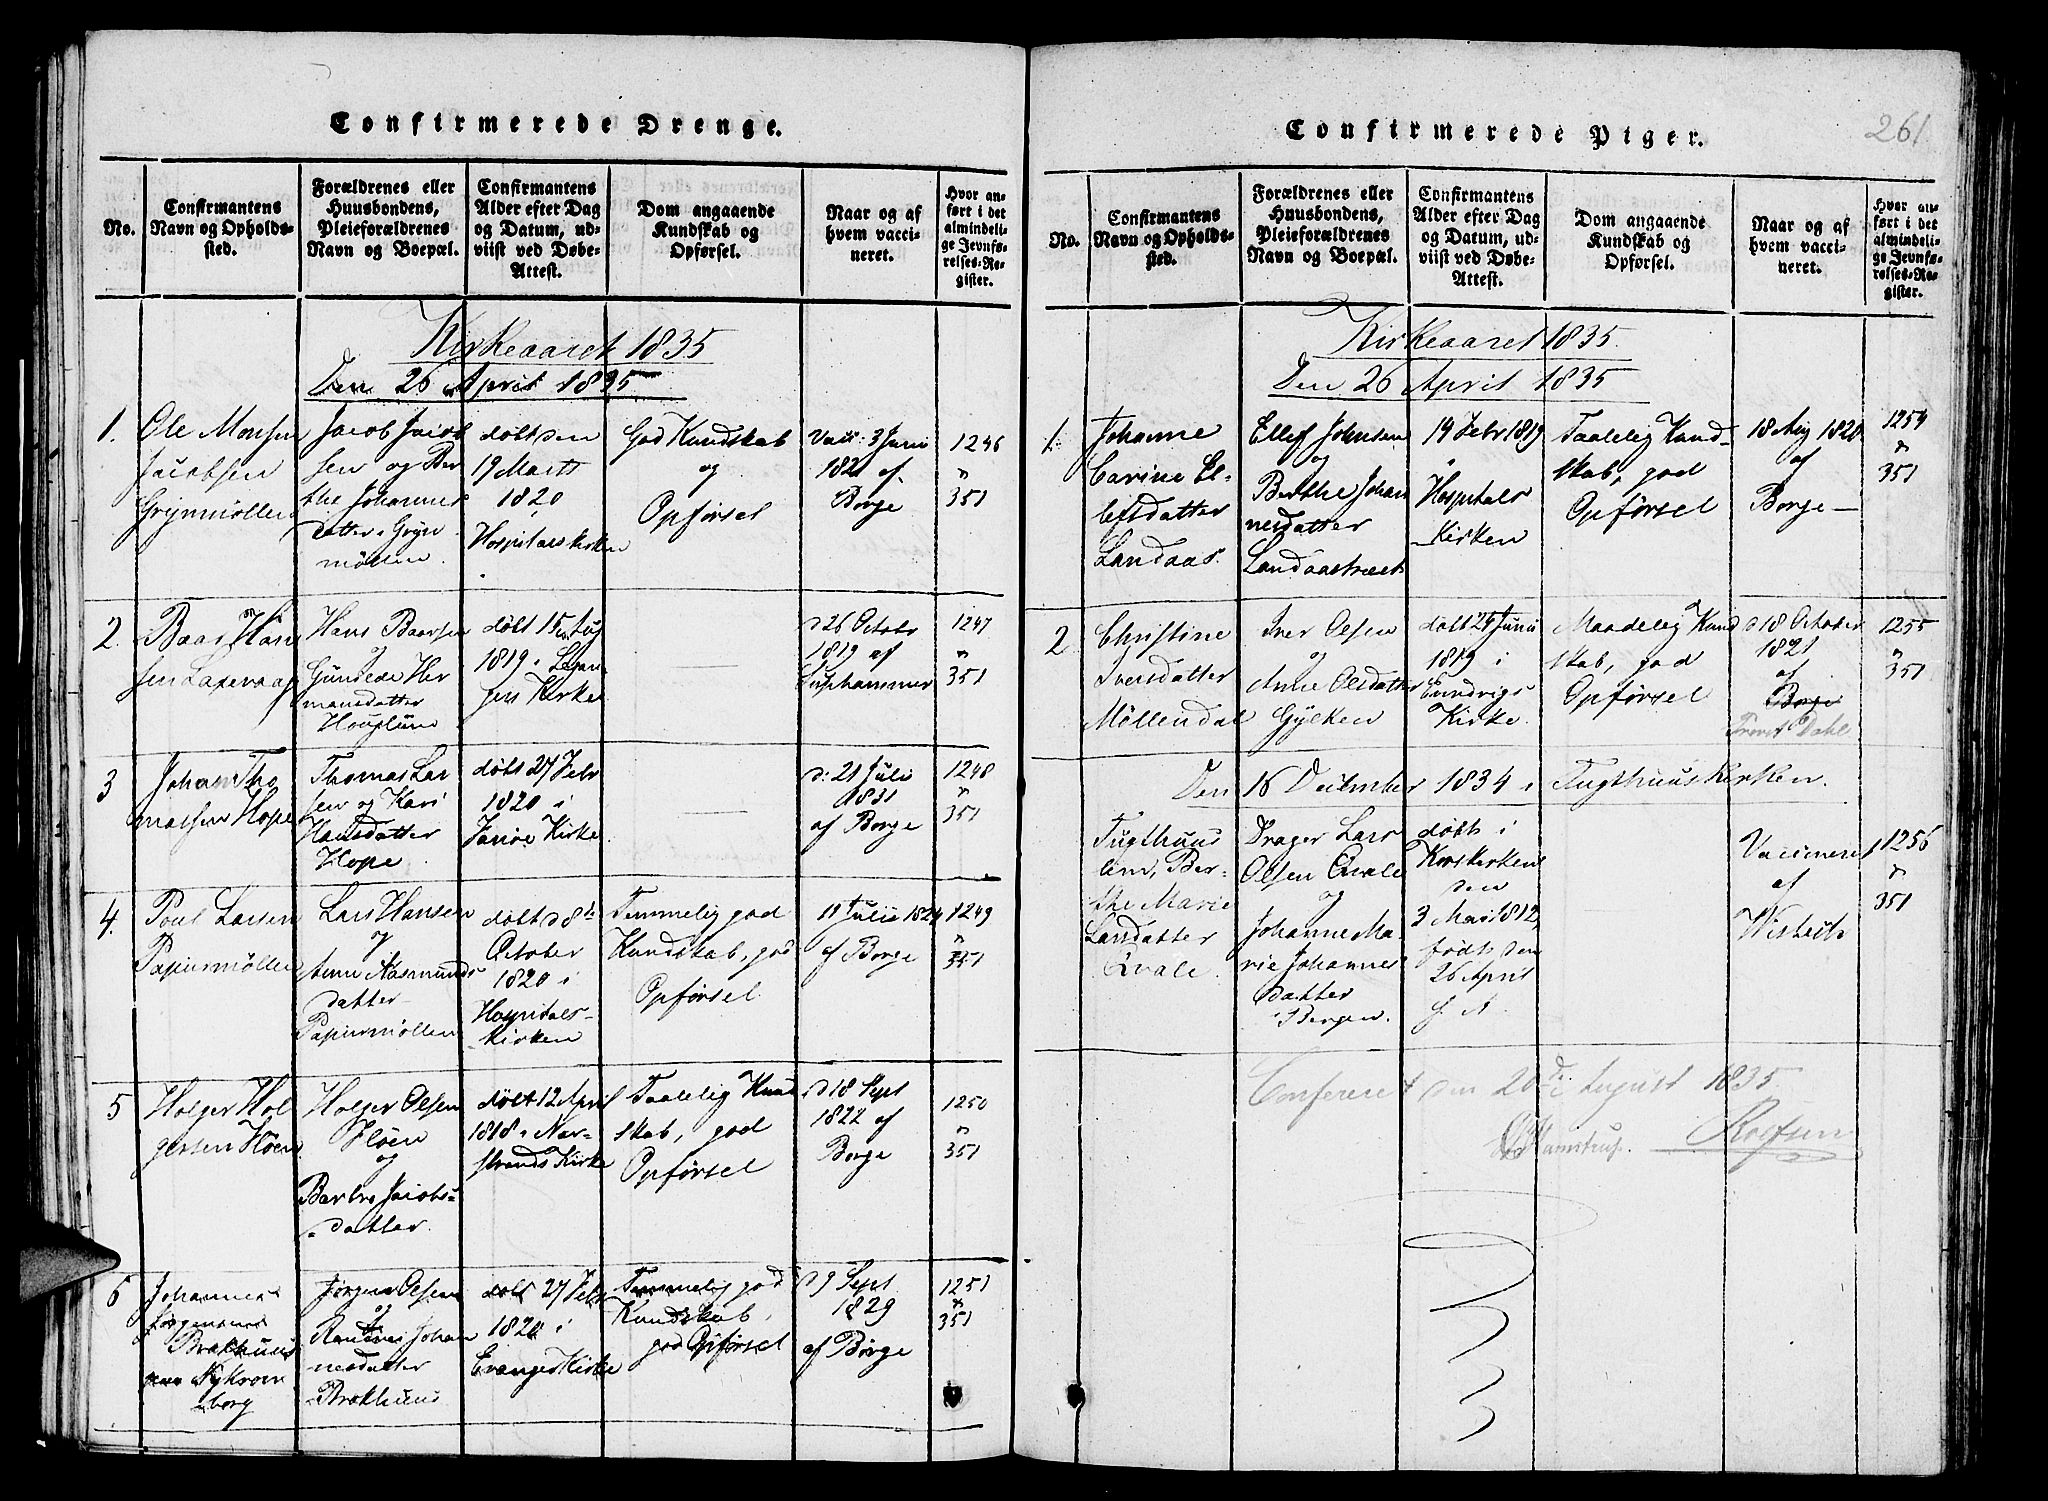 Confirmerede Drenge.
No.
Confirmantens
Navn og Opholds-
sted.
Forældrenes eller
Huusbondens,
Pleieforældrenes
Navn og Boepæl.
Confirmantens
Alder efter Dag
og Datum, ud-
viist ved Døbe-
Attest.
Dom angaaende
Kundskab og
Opførsel.
Naar og af
hvem vacci-
neret.
Hvor an-
ført i det
almindeli-
ge Jevnfø-
relses-Re-
gister.
Kirkeaaret 1835
Den 26 April 1835
1.
Ole Monsen
Jacobsen
Grynmöllen
Jacob Jacob
sen og Ber
the Johannes
datter, Gryn
möllen.
døbt den
19 Marts
1820
Hospitalskirken
God Kundskab
og
Opførsel
Vacc: 3 Juni
1821 af
Borge
1246
"
351
2.
Baar Han
sen Laxevaag
Hans Baarsen
og
Gunilde Her
mansdatter
døbt 15 Aug
1819 i
Kirke
d 26 Octobr
1819 af
1247
"
351
3
Johan Tho
massen Hope
Thomas Lar
sen og Kari
Hansdatter
Hope
døbt 27 Febr
1820 i
Kirke
d: 21 Juli
1831
af Borge
1248
"
351
4.
Poul Larsen
Papirmöllen
Lars Hansen
og
Anne Aasmunds
datter
Papirmöllen
døbt d 8de
October
1820 i
Hospitals-
kirken
Temmelig god
Kundskab, god
Opførsel
11 Julii 1824
af Borge
1249
"
351
5
Holger Hol
gersen Fløen
Holger Olsen
Fløen
og
Barbro Jacobs-
datter.
døbt 12 April
1818 i Nar-
strands Kirke
Taalelig Kund
skab, god
Opførsel
d 18 Sept
1822 af
Borge
1250
"
351
6
Johannes
Jørgensen
Brakhuus
Jørgen Olsen
og
Johan
nesdatter
Brakhuus
døbt 27 Febr
1820 i
Kirke
Temmelig god
Kundskab,
god Opførsel
d 9 Sept
1829
af Borge
1251
"
351
Confirmerede Piger.
261
No.
Confirmantens
Navn og Opholds-
sted.
Forældrenes eller
Huusbondens,
Pleieforældrenes
Navn og Boepæl.
Confirmantens
Alder efter Dag
og Datum, ud-
viist ved Døbe-
Attest.
Dom angaaende
Kundskab og
Opførsel.
Naar og af
hvem vacci-
neret.
Hvor an-
ført i det
almindeli-
ge Jevnfø-
relses-Re-
gister.
Kirkeaaret 1835
Den 26 April 1835
1.
Johanne
Carine El-
lefsdatter
Landaas.
Ellef Johnsen
og
Berthe Johan
nesdatter
Landaastræet
14 Febr 1819
Hospitals
Kirken
Taalelig Kund-
skab, god
Opførsel
18 Aug 1820
af
Borge
1254
"
351
2
Christine
Iversdatter
Möllendal
Iver Olsen
og
Anne Olsdatter
Gylken
døbt 24 Junii
1819 i
Eundvigs
Kirke.
Maadelig Kund
skab, god
Opførsel
d 18 October
1821
af
Borge
Provst Dahl
1255
"
351
Den 16 December 1834 i Tugthuuskirken.
Tugthuus
lem, Ber-
the Marie
Larsdatter
Qvale.
Drager Lars
Olsen Qvale
og
Johanne Ma-
rie Johannes
datter
Bergen.
døbt i
Korskirken
den
3 Mai 1812,
født den
26 April
s. A.
Vaccineret
af
1256
"
351
Confereret den 20de August 1835
Rolfsen